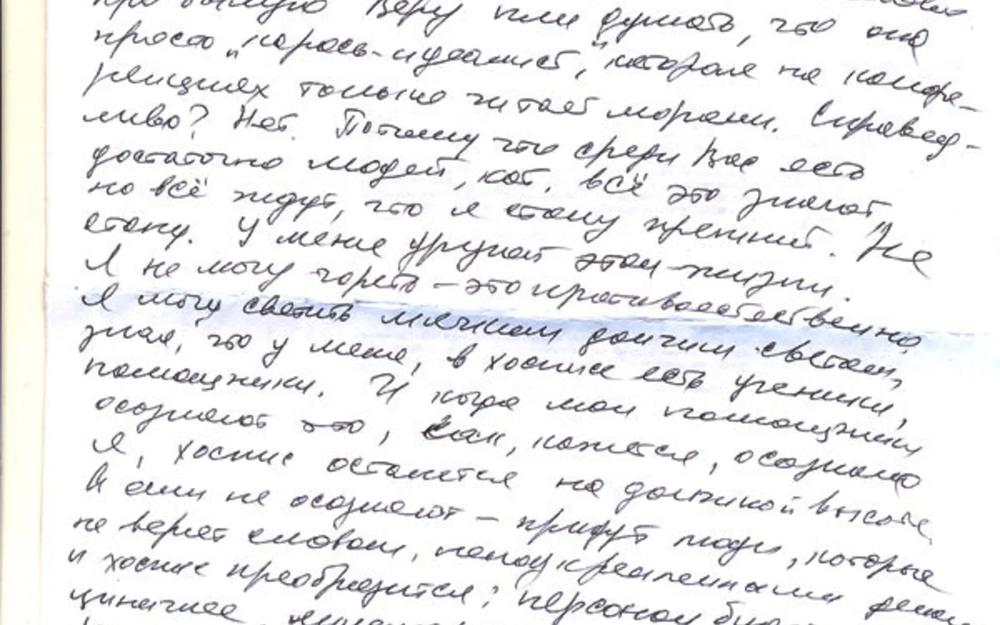 про бывшую Веру или думать, что она
просто "карась-идеалист", которая на конфе-
ренциях только читает морали. Справед-
ливо? Нет. Потому что среди Вас есть
достаточно людей, кот. всё это знают,
но всё ждут, что я стану прежней. Не
стану. У меня другой этап жизни.
Я не могу гореть – это противоестественно.
Я могу светить мягким долгим светом,
зная, что у меня, в хосписе есть ученики,
помощники. И когда мои помощники
осознают это, как, кажется, осознала
я, хоспис останется на должной высоте.
А они не осознают – придут люди, которые
не верят словам, неподкрепленными делом
и хоспис преобразится: персонал
циничнее